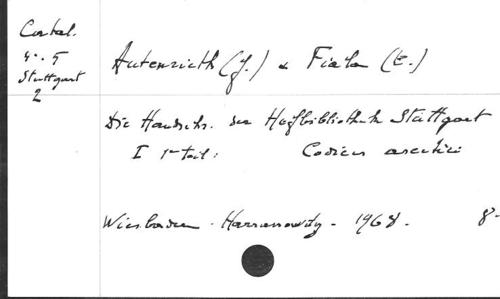 Catal.
4°. 5
Stuttgart
2
Autenrieth (J.) & Fiala (E.)
Die Handschr. der Hofbibliothek Stuttgart
I 1er teil: Codices ascetici
Wiesbaden - Harrassowitz - 1968. 8°.